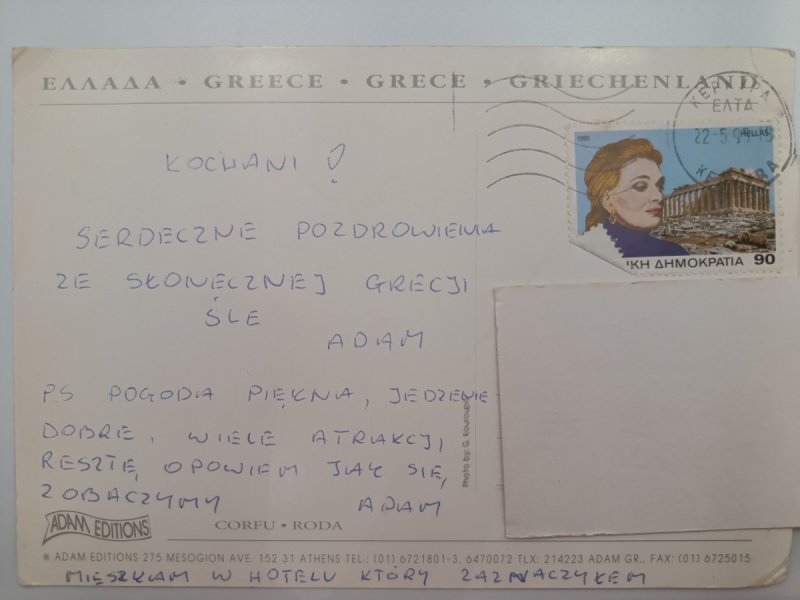 ΕΛΛΑΔΑ • GREECE • GRECE • GRIECHENLAND
ΕΛΤΑ
22-5
1995
HELLAS
ΚΗ ΔΗΜΟΚΡΑΤΙΑ 90
KOCHANI!
SERDECZNE POZDROWIENIA
ZE SŁONECZNEJ GRECJI
ŚLE
ADAM
PS POGODA PIĘKNA, JEDZENIE
DOBRE, WIELE ATRAKCJI,
RESZTĘ OPOWIEM JAK SIĘ
ZOBACZYMY ADAM
Photo by: G.
ADAM EDITIONS
CORFU • RODA
ADAM EDITIONS 275 MESOGION AVE. 152 31 ATHENS TEL.: (01) 6721801-3, 6470072 TLX: 214223 ADAM GR., FAX: (01) 6725015
MIESZKAM W HOTELU KTÓRY ZAZNACZYŁEM